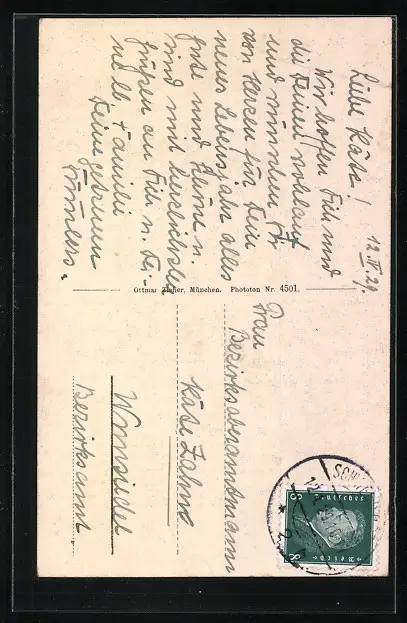 12. IV. 29.
Liebe Käte!
Wir hoffen Dich und
die Deinen wohlauf
und wünschen Dir
von Herzen für Dein
neues Lebensjahr alles
gute und Schöne u.
sind mit herzlichsten
Grüßen an Dich u. Fr.
Deine getreuen
Ottmar Zieher, München. Phototon Nr. 4501.
Frau
Bezirksoberamtmann
Käte Zahn
Wunsiedel
Bezirksamt.
Deutsches
Reich
8 8